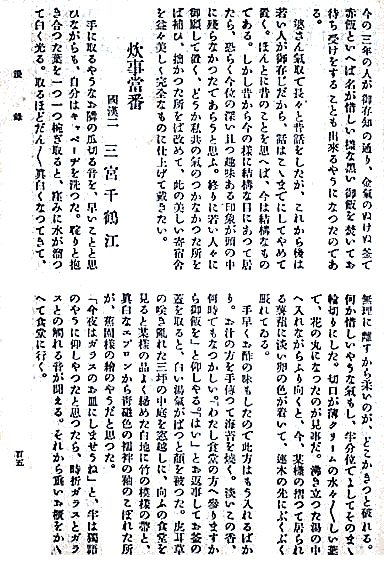 今の三年の人が御存知の通り、金氣のぬけぬ釜で
赤飯といへば名が惜しい樣な黑い御飯を焚いてお
待ち受けをすることも出來るやうになつたのであ
る。
婆さん氣取で長々と昔話をしたが、これから後は
若い人が御存じだから、話はこゝまでにしてやめて
置く。ほんとに昔のことを思へば、今は結構なもの
である。しかし昔から今の樣に結構な日にあつて居
たら、恐らく今位の深い且つ趣味ある印象が頭の中
に殘らなかつたであらうと思ふ。終りに若い人々に
御願して置く、どうか私共の氣のつかなかつた所を
ば補ひ、拙かつた所をば改めて、此の美しい寄宿舍
を益々美しく完全なものに仕上げて戴きたい。
炊事當番
國漢二 三宮千鶴江
手に取るやうなお隣の瓜切る音を、早いことと思
ひながらも、自分はキャベーヂを洗つた。確りと抱
きあつた葉を一つ一つ破ぎ取ると、窪みに水が溜つ
て白く光る。取るほどだん〳〵眞白くなつてきて、
無理に離すから柔いのが、どこかきつと破れる。
何か惜しいやうな氣もし、半分位でよしてそのまゝ
輪切りにした。切口が薄クリームの水々〳〵しい葉
で、花の丸になつたのが見事だ。沸き立つた湯の中
へ入れながらふり向くと、今、某樣の摺つて居られ
る葵菹に淡い卵の色が着いて、連木の先にぷくぷく
脹れてゐる。
手早くお酢の味もしたので此方はもう入れるばか
り。お汁の方を手傳つて海苔を燒く。淡いこの香、
何時でもなつかしい。わたし食堂の方へ參りますか
ら御飯を」と仰しやる。「はい」とお返事してお釜の
蓋を取ると、白い湯氣がぱつと顏を被つた。虎耳草
の咲き亂れた三坪の中庭を窓越しに、向ふの食堂を
見ると某樣の品よく秘めた白地に竹の模樣の帶と、
眞白なエプロンから靑磁色の襦袢の釉のこぼれた所
が、蕉園樣の繪のやうだと思つた。
「今夜はガラスのお皿にしませうね」と、半は獨語
のやうに仰しやつたと思つたら、時折ガラスとガラ
スとの觸れる音が聞える。それから重いお櫃をかゝ
へて食堂に行く。
漫錄
百五